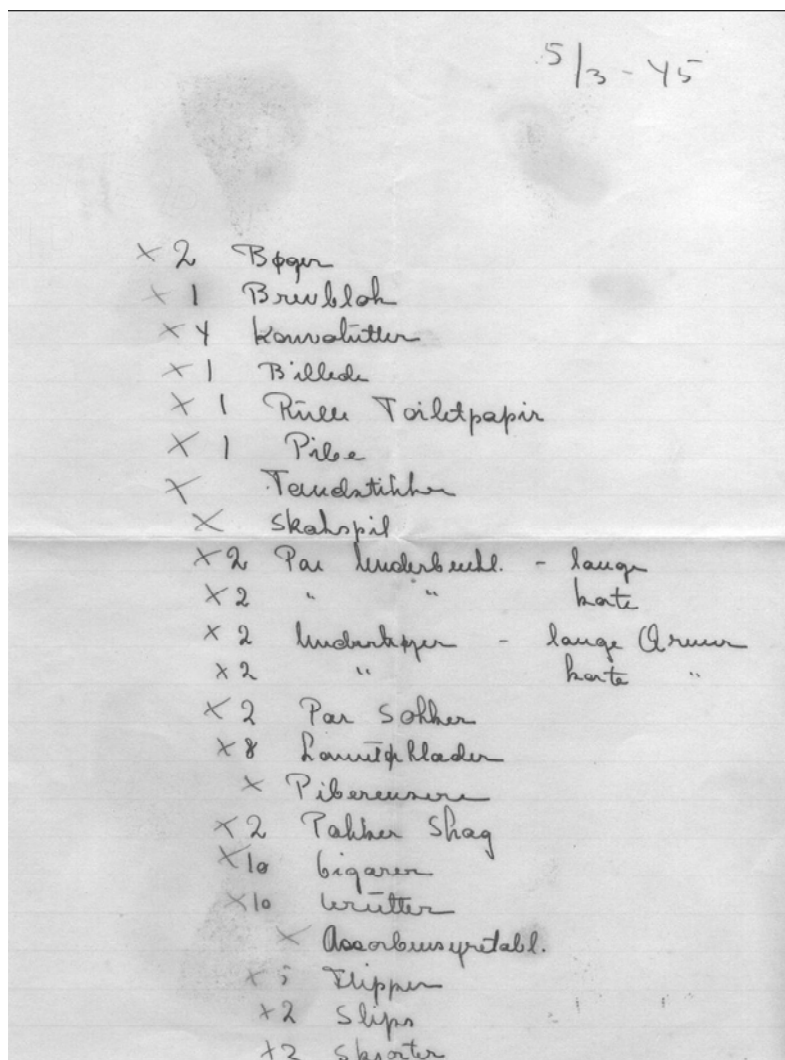 5/3 - 45
× 2 Bøger
× 1 Brevblok
× 4 Konvolutter
× 1 Billede
× 1 Rulle Toiletpapir
× 1 Pibe
× Tændstikker
× Skakspil
× 2 Par Underbenkl. - lange
× 2 " " korte
× 2 Undertrøjer - lange Ærmer
× 2 " korte "
× 2 Par Sokker
× 8
× Piberensere
× 2 Pakker Shag
× 10 Cigarer
× 10 Cerutter
× Ascorbinsyretabl.
× 5 Flipper
× 2 Slips
× 2 Skjorter